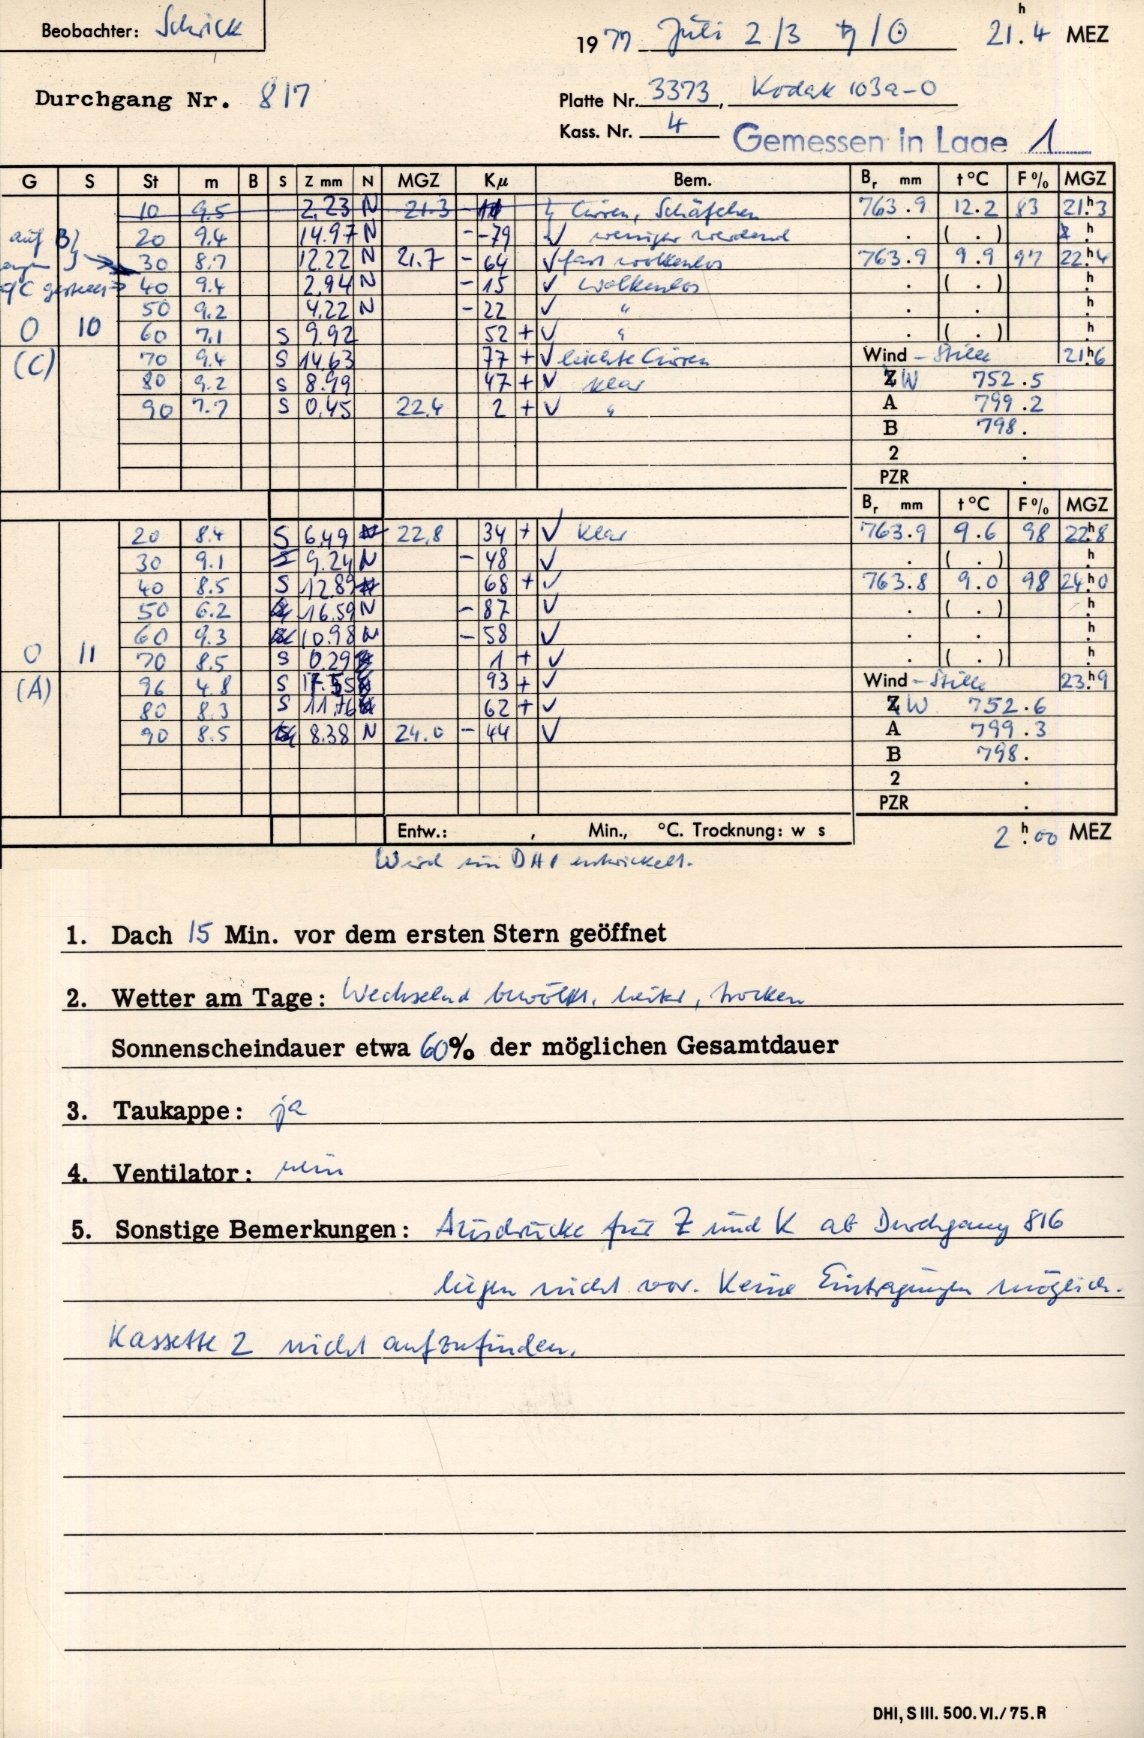 Beobachter: Schrick
1977 Juli 2/3 ♄/☉ 21.h4 MEZ
Durchgang Nr. 817
Platte Nr. 3373, Kodak 103a-O
Kass. Nr. 4 Gemessen in Lage 1
G S St m B S Z mm N MGZ Kμ Bem. Br mm t °C F% MGZ
10 9.5 2.23 N 21.3 - Cirren, Schäfchen 763.9 12.2 83 21.h3
auf B) 20 9.4 14.97 N - 79 ✓ weniger werdend . ( . ) h
30 8.7 12.22 N 21.7 - 64 ✓ fast wolkenlos 763.9 9.9 97 22.h4
40 9.4 2.94 N - 15 ✓ wolkenlos . ( . ) h
50 9.2 4.22 N - 22 ✓ " . . h
0 10 60 7.1 S 9.92 52 + ✓ " . ( . ) h
(C) 70 9.4 S 14.63 77 + ✓ leichte Cirren Wind - Stille 21.h6
80 9.2 S 8.99 47 + ✓ klar W 752.5
90 7.7 S 0.45 22.4 2 + ✓ " A 799.2
B 798.
2 .
PZR .
Br mm t °C F% MGZ
20 8.4 S 6.49 22.8 34 + ✓ klar 763.9 9.6 98 22.h8
30 9.1 9.24 N - 48 ✓ . ( . ) h
40 8.5 S 12.89 68 + ✓ 763.8 9.0 98 24.h0
50 6.2 16.59 N - 87 ✓ . ( . ) h
60 9.3 10.98 N - 58 ✓ . . h
0 11 70 8.5 S 0.29 1 + ✓ . ( . ) h
(A) 96 4.8 S 17.55 93 + ✓ Wind - Stille 23.h9
80 8.3 S 11.76 62 + ✓ W 752.6
90 8.5 8.38 N 24.0 - 44 ✓ A 799.3
B 798.
2 .
PZR .
Entw.: , Min., °C. Trocknung: w s 2h.00 MEZ
Wird im DHI entwickelt.
1. Dach 15 Min. vor dem ersten Stern geöffnet
2. Wetter am Tage: Wechselnd bewölkt, heiter, trocken
Sonnenscheindauer etwa 60% der möglichen Gesamtdauer
3. Taukappe: ja
4. Ventilator: nein
5. Sonstige Bemerkungen: Ausdrücke für Z und K ab Durchgang 816
liegen nicht vor. Keine Eintragungen möglich.
Kassette 2 nicht aufzufinden.
DHI, S III. 500. VI./75. R